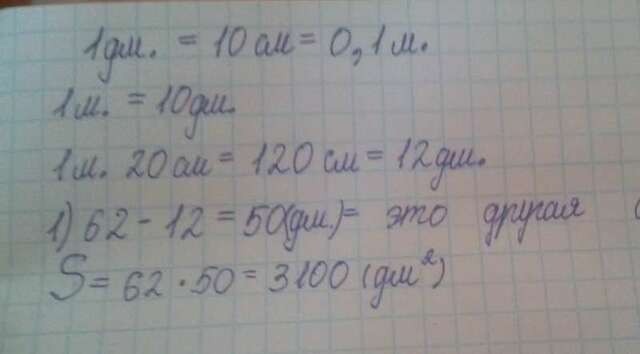 1дм. = 10см = 0,1м.
1м. = 10дм.
1м. 20см = 120см = 12дм.
1) 62 - 12 = 50(дм.) = это другая
S = 62 · 50 = 3100 (дм²)